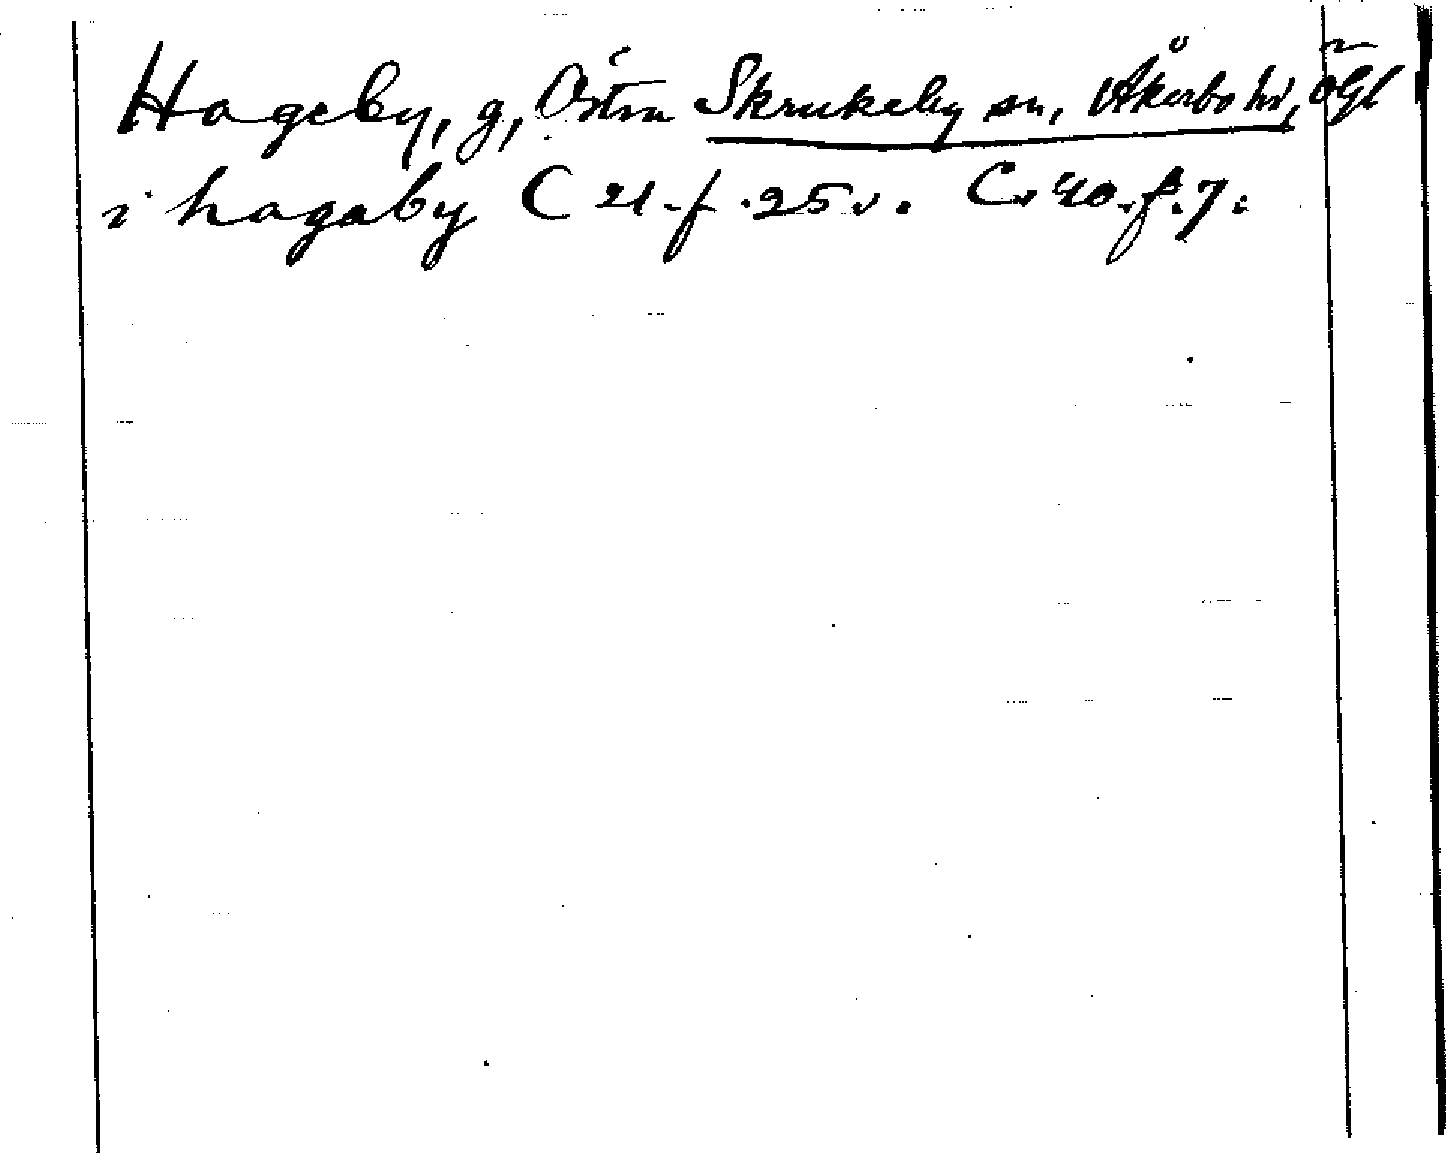 Hageby, g, Östra Skrukeby sn, Åkerbo hd, Ögl
i hagaby C 21. f. 25 v. C. 40. f. 7.